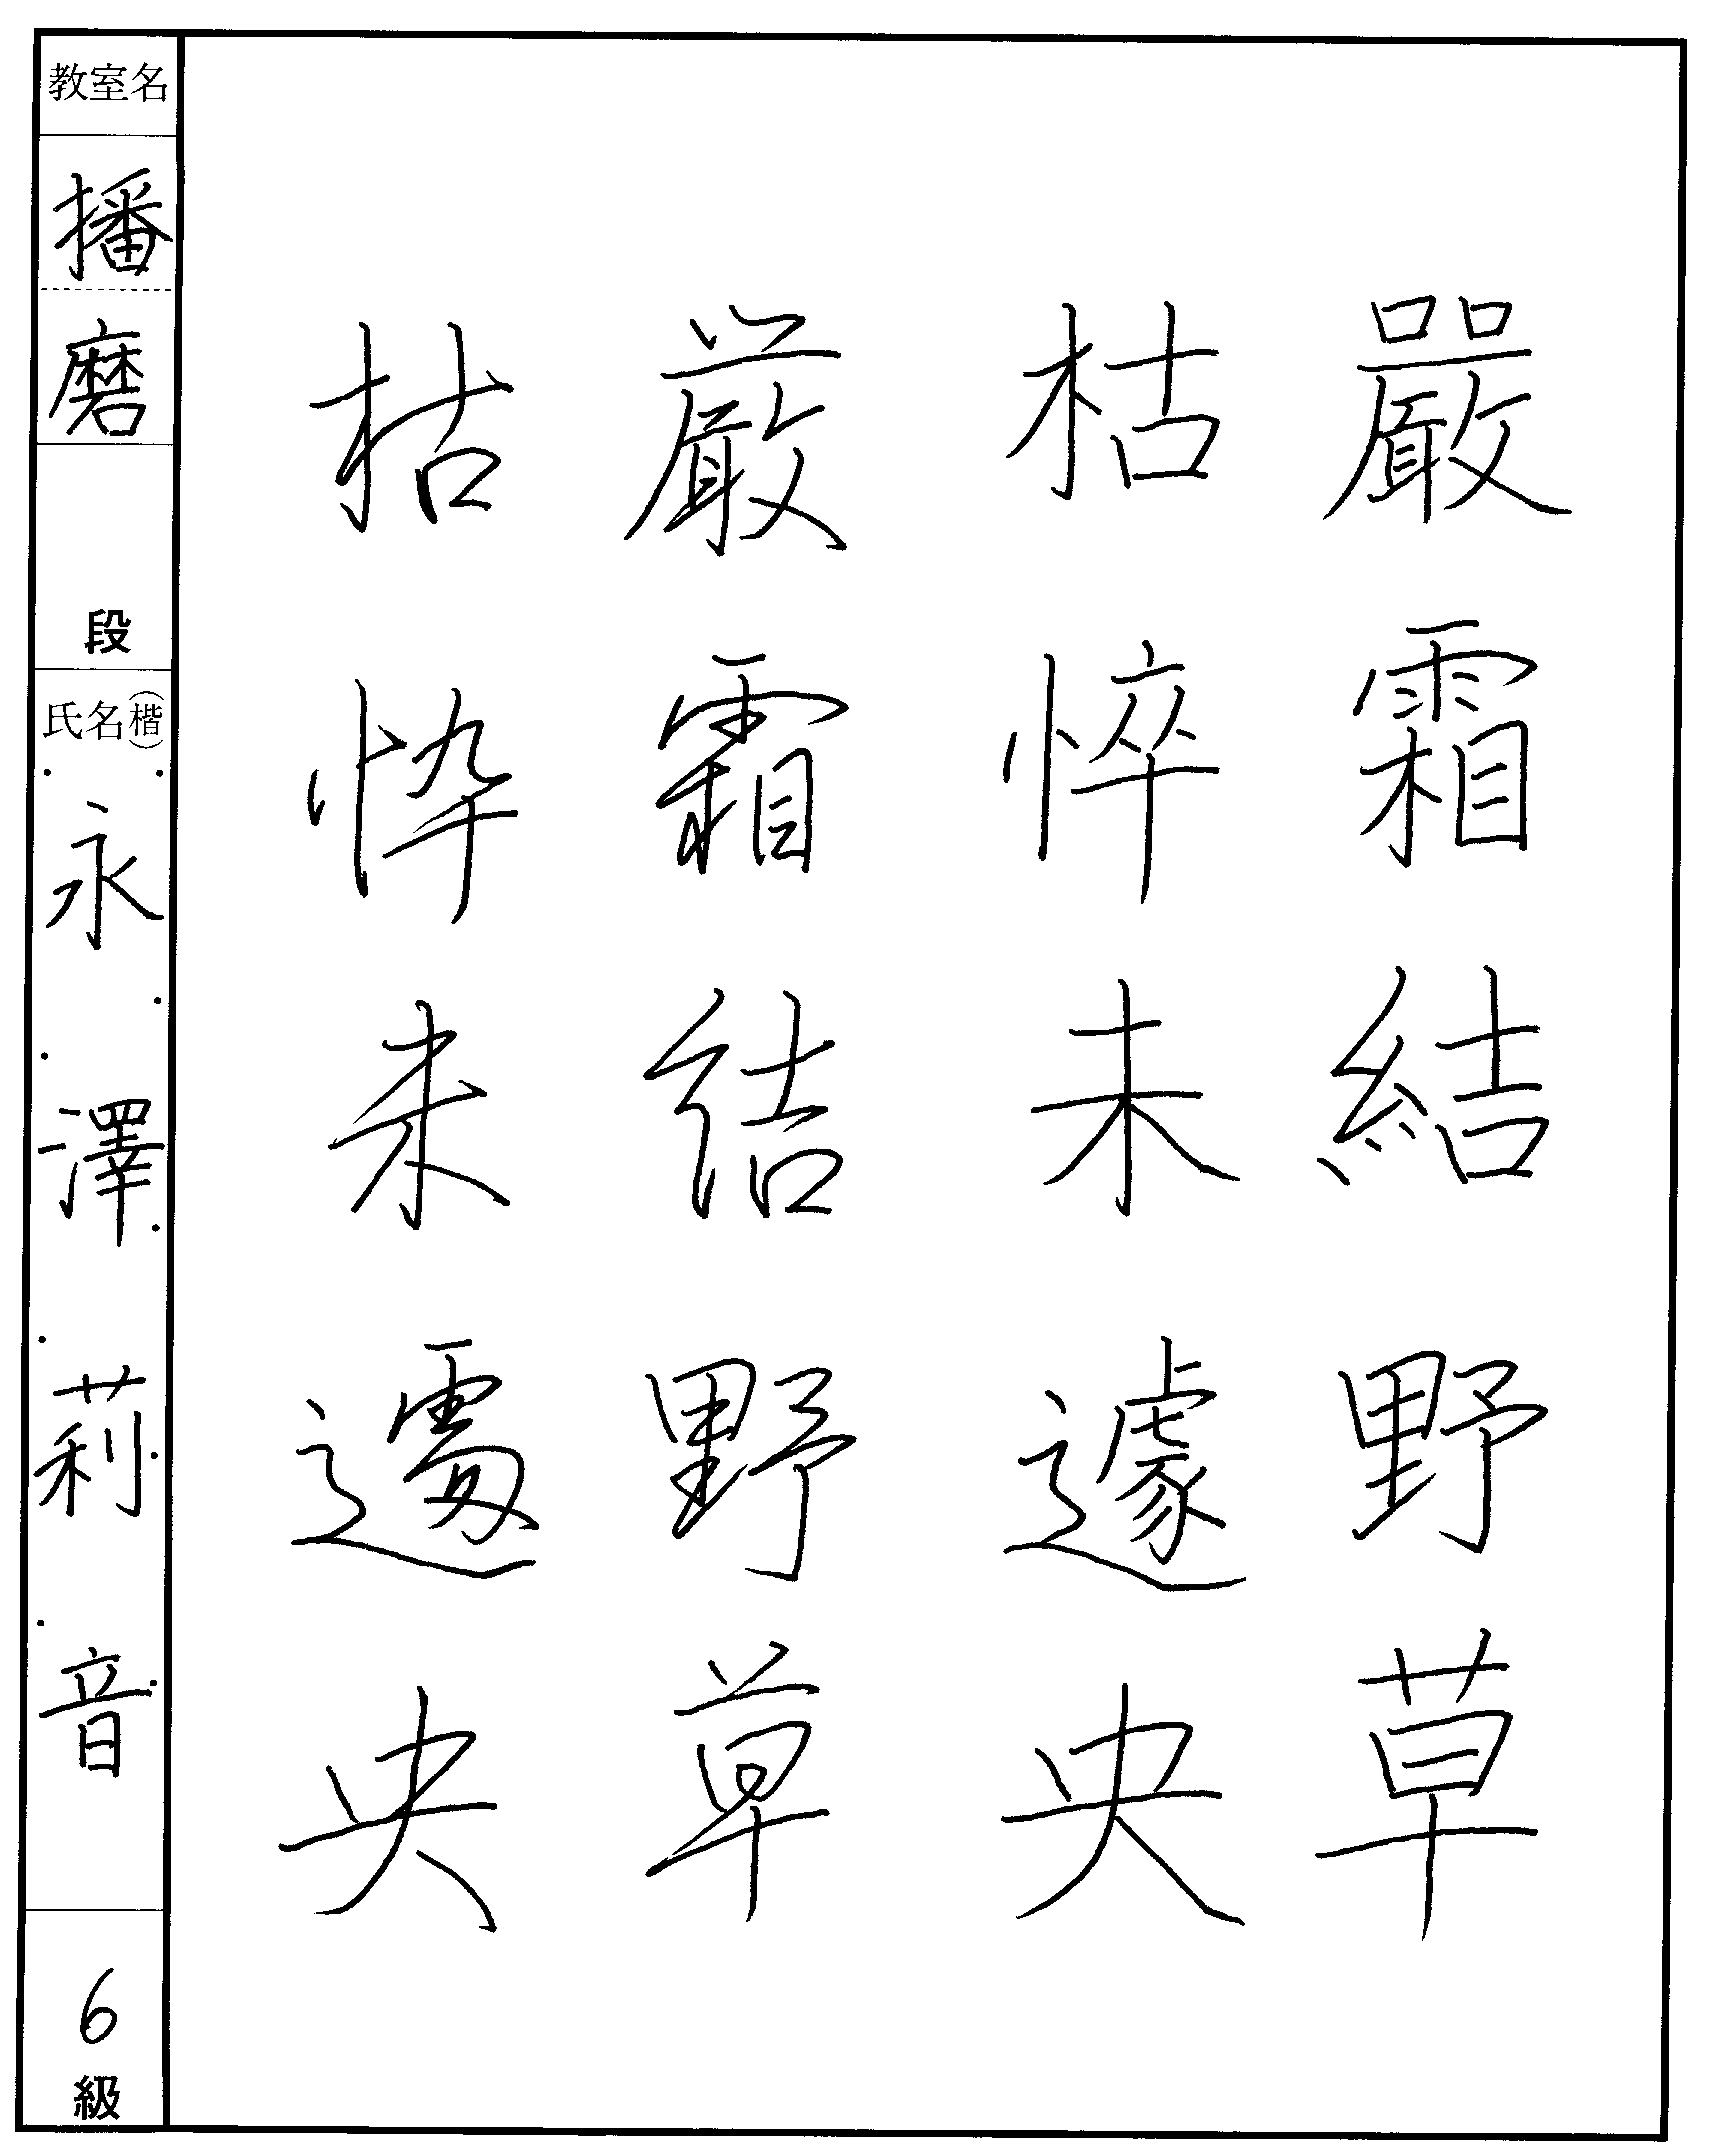 嚴霜結野草
枯悴未遽央
嚴霜結野草
枯悴未遽央
教室名
播磨
段
氏名(楷)
永澤莉音
6級